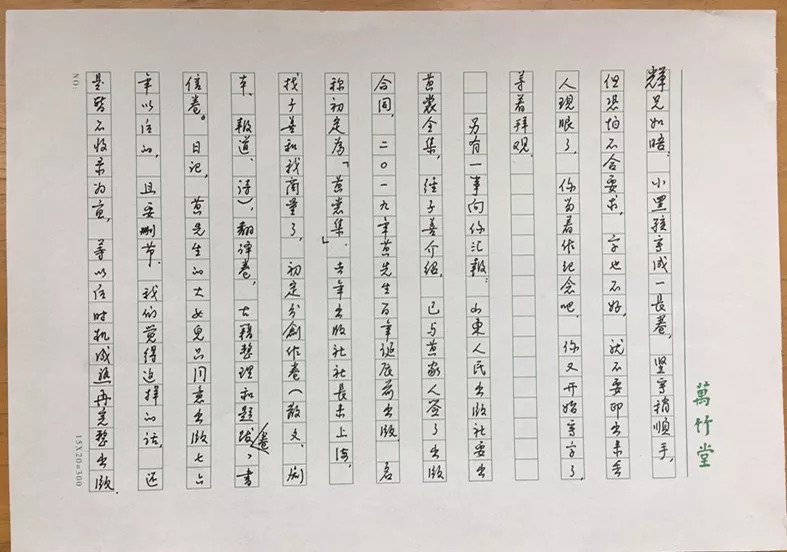 萬竹堂
輝兄如晤,小黑孩寫成一長卷,竖寫稍順手,
但恐怕不合要求,字也不好,就不要印出来丢
人現眼了,你留着作纪念吧。你又开始寫字了,
等着拜观。
另有一事向你汇報:山東人民出版社要出
黄裳全集,經子善介绍,已与黄家人签了出版
合同,二〇一九年黄先生百年诞辰前出版,名
称初定為「黄裳集」。去年出版社社長来上海,
找子善和我商量了,初定分創作卷(散文、剧
本、報道、诗),翻译卷,古籍整理和题跋卷、書
信卷。日记,黄先生的大女兒只同意出版七六
年以后的,且要删节,我们觉得这样的话,还
是暂不收录为宜,等以后时机成熟再完整出版。
NO:
15X20=300